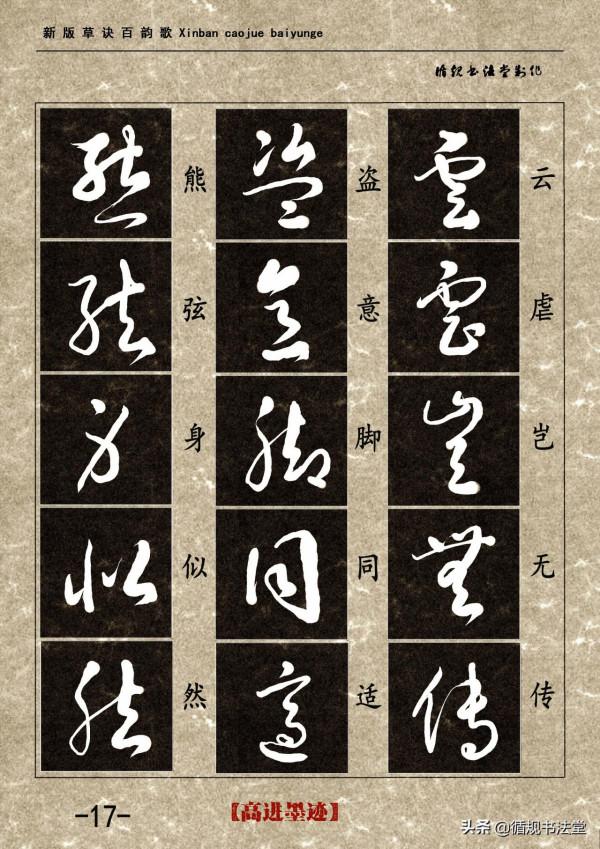 新版草诀百韵歌 Xinban caojue baiyunge
循规书法堂制作
云虐岂无传
盗意脚同适
熊弦身似然
-17-
【高进墨迹】
头条 @循规书法堂